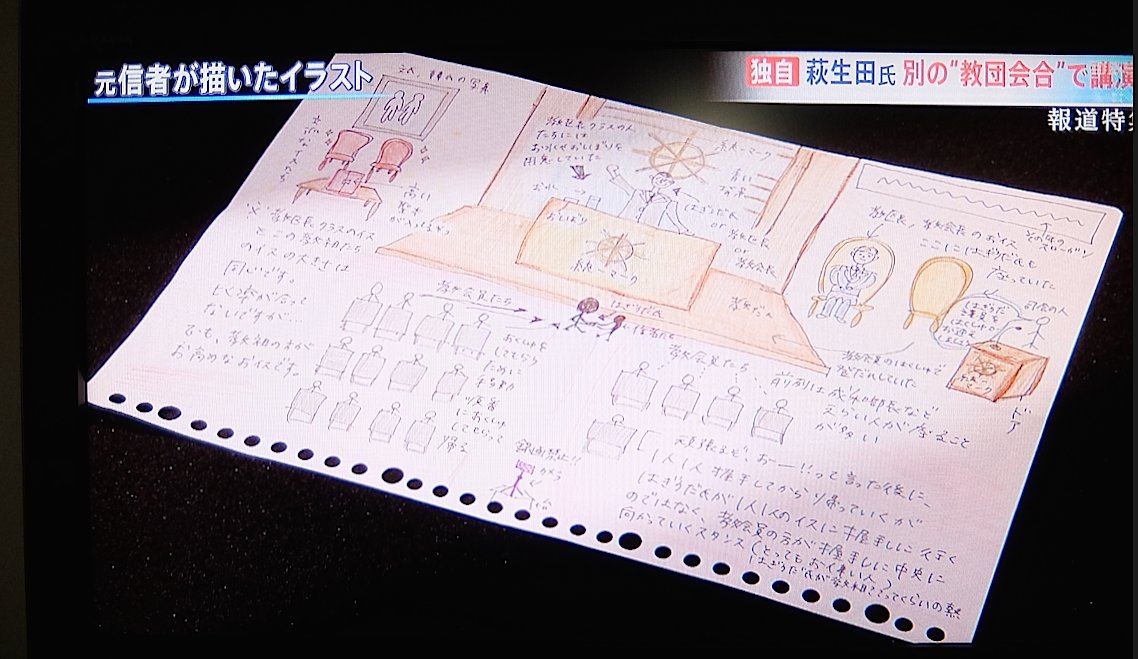 元信者が描いたイラスト
独自 萩生田氏 別の“教団会合”で講演
報道特集
教区長クラスの人
たちには
お水やおしぼりを
用意していた
お水
おしぼり
統一マーク
はぎうだ氏
or 教区長
or 教会長
統一マーク
教だん
高い
※教区長クラスのイス
とこの教祖たち
のイスの大きさは
同じです。
ないですが…
でも、教祖の方が
お高めなおイスです。
教会員たち
はぎうだ氏
あくしゅを
してもらう
ために
移動
順番
にあくしゅ
してもらって
帰る
録画禁止!!
カメラ
教区長、教会長のおイス
ここにはぎうだ氏も
座っていた
司会の人
教会員のはくしゅで
ドア
教会員たち
前列は成和部長など
えらい人が座ること
が多い
頑張るぞ！おー!!って言った後に、
1人1人握手してから帰っていくが
はぎうだ氏が1人1人のイスに握手しに行く
のではなく、教会員の方が握手しに中央に
向かっていくスタンス(とってもお偉い人)
はぎうだ氏が教祖?ってくらいの熱